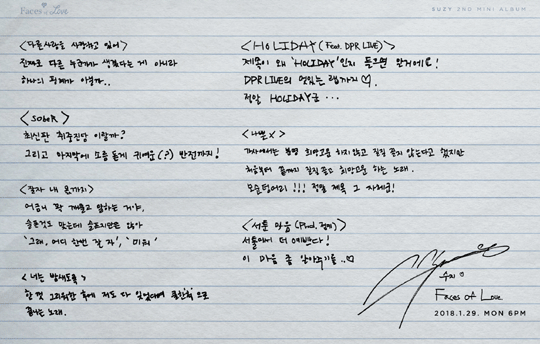 Faces of Love
SUZY 2ND MINI ALBUM
<다른사람을 사랑하고 있어>
진짜로 다른 누군가가 생겼다는 게 아니라
하나의 핑계가 아닐까..
<SObeR>
최신판 취중진담 이랄까?
그리고 마지막에 소름 돋게 귀여운(?) 반전까지!
<잘자 내 몫까지>
어금니 꽉 깨물고 말하는 거야.
슬픈것도 맞는데 슬프지만은 않아
'그래, 어디 한번 잘 자', '미워'
<너는 밤새도록>
한 껏 그리워한 후에 저도 다 잊었다며 쿨한척 으로
끝나는 노래.
<HOLIDAY (Feat. DPR LIVE)>
제목이 왜 'HOLIDAY'인지 들으면 안거에요!
DPR LIVE의 멋있는 랩까지♡.
정말 HOLIDAY군...
<나쁜X>
가사에서는 분명 희망고문 하지 않고 질질 끌지 않는다고 했지만
처음부터 끝까지 질질 끌고 희망고문 하는 노래.
모순덩어리!!! 정말 제목 그 자체군!
<서툰 마음 (Prod. 정키)>
서툴어서 더 예쁘다!
이 마음 좀 알아주기를..♡
수지♡
Faces of Love
2018.1.29. MON 6PM